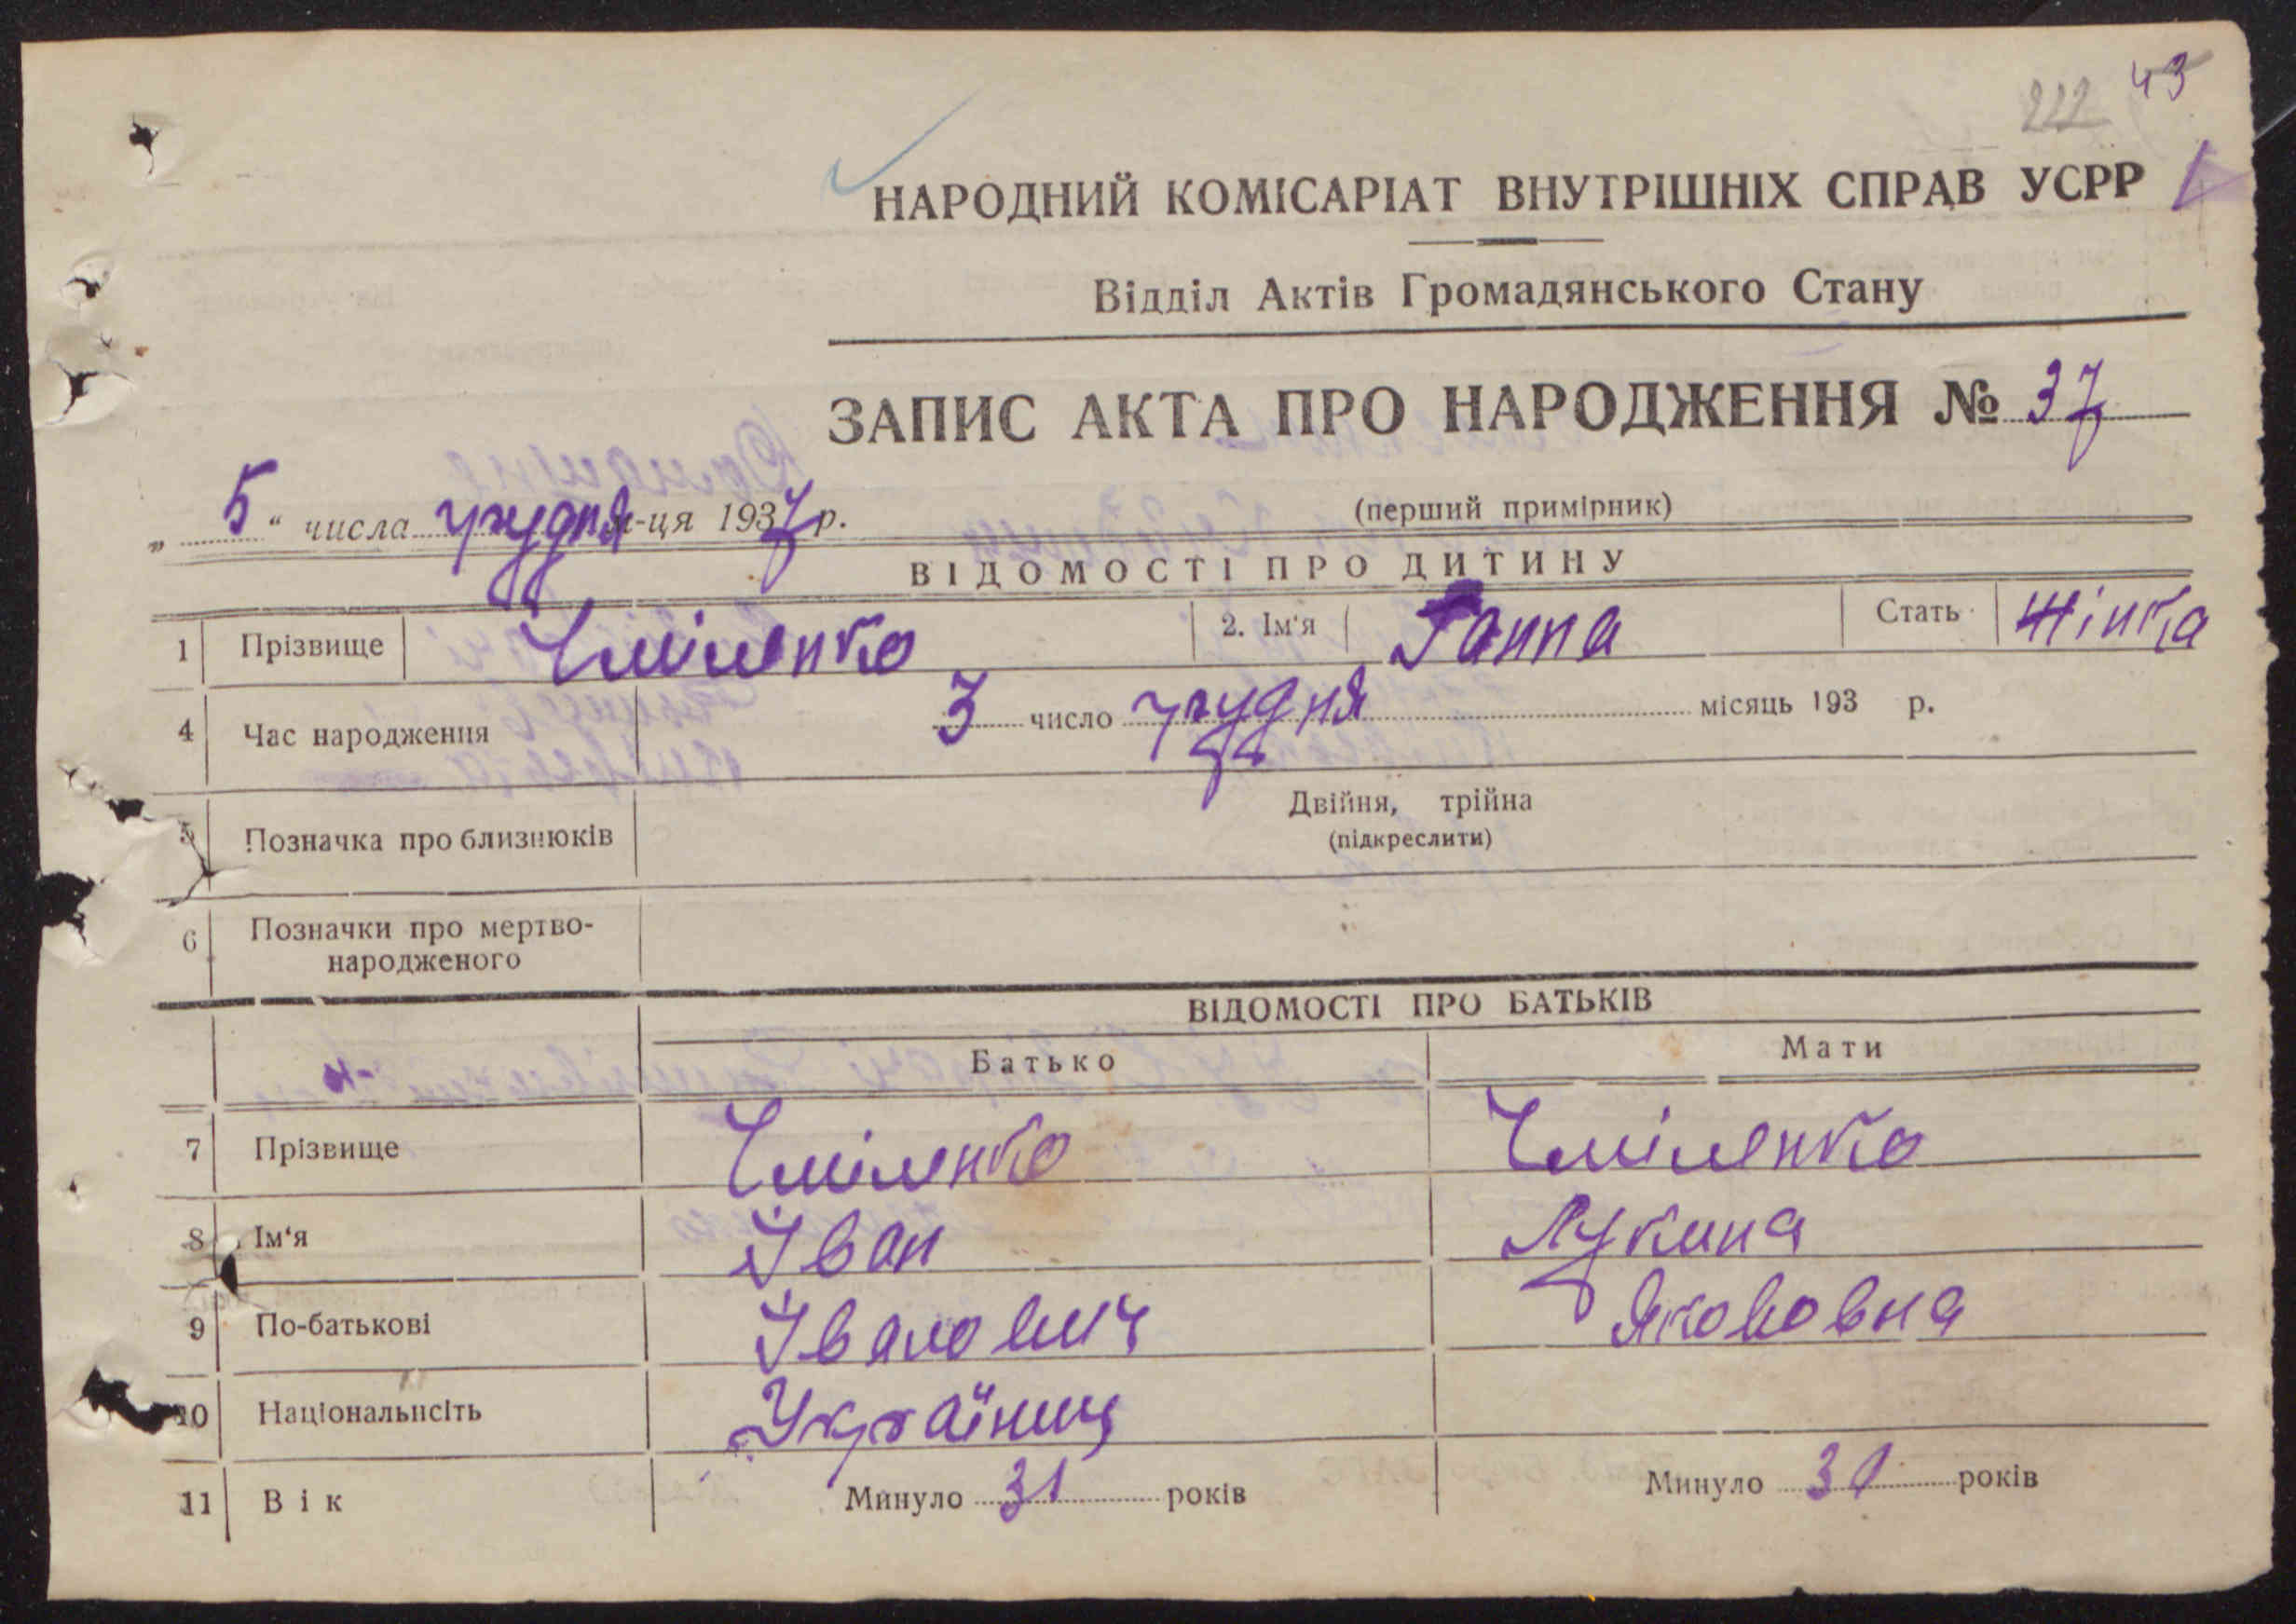 43
222
НАРОДНИЙ КОМІСАРІАТ ВНУТРІШНІХ СПРАВ УСРР
Відділ Актів Громадянського Стану
ЗАПИС АКТА ПРО НАРОДЖЕННЯ № 37
„5“ числа грудня м-ця 1937 р. (перший примірник)
ВІДОМОСТІ ПРО ДИТИНУ
1 Прізвище Чміленко 2. Ім'я Ганна Стать Жінка
4 Час народження 3 число грудня місяць 193 р.
5 Позначка про близнюків Двійня, трійна
(підкреслити)
6 Позначки про мертво-
народженого
ВІДОМОСТІ ПРО БАТЬКІВ
Батько Мати
7 Прізвище Чміленко Чміленко
8 Ім'я Іван Лукина
9 По-батькові Іванович Якововна
10 Національність Українц
11 Вік Минуло 31 років Минуло років